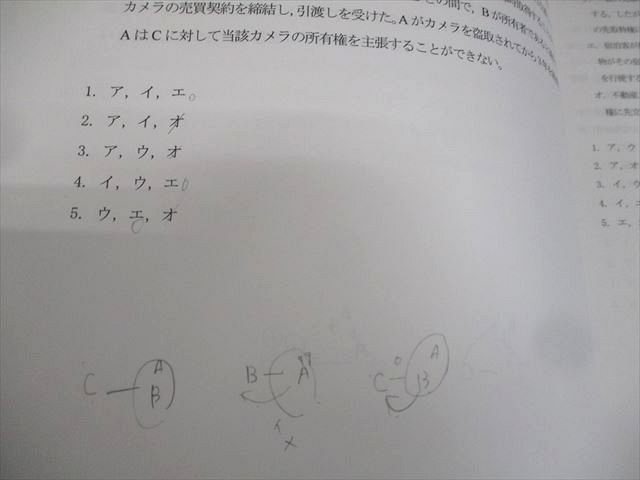 その間で，Bが所有者である
カメラの売買契約を締結し，引渡しを受けた。Aがカメラを盗取されてから
AはCに対して当該カメラの所有権を主張することができない。
1. ア，イ，エ
2. ア，イ，オ
3. ア，ウ，オ
4. イ，ウ，エ
5. ウ，エ，オ
C A B
B A イ ×
C A B
する。したが
の先取特権
エ．宿泊客が
物がその宿
を行使する
オ．不動産
権に先立
1. ア，ウ
2. ア，オ
3. イ，ウ
4. イ，エ
5. エ，